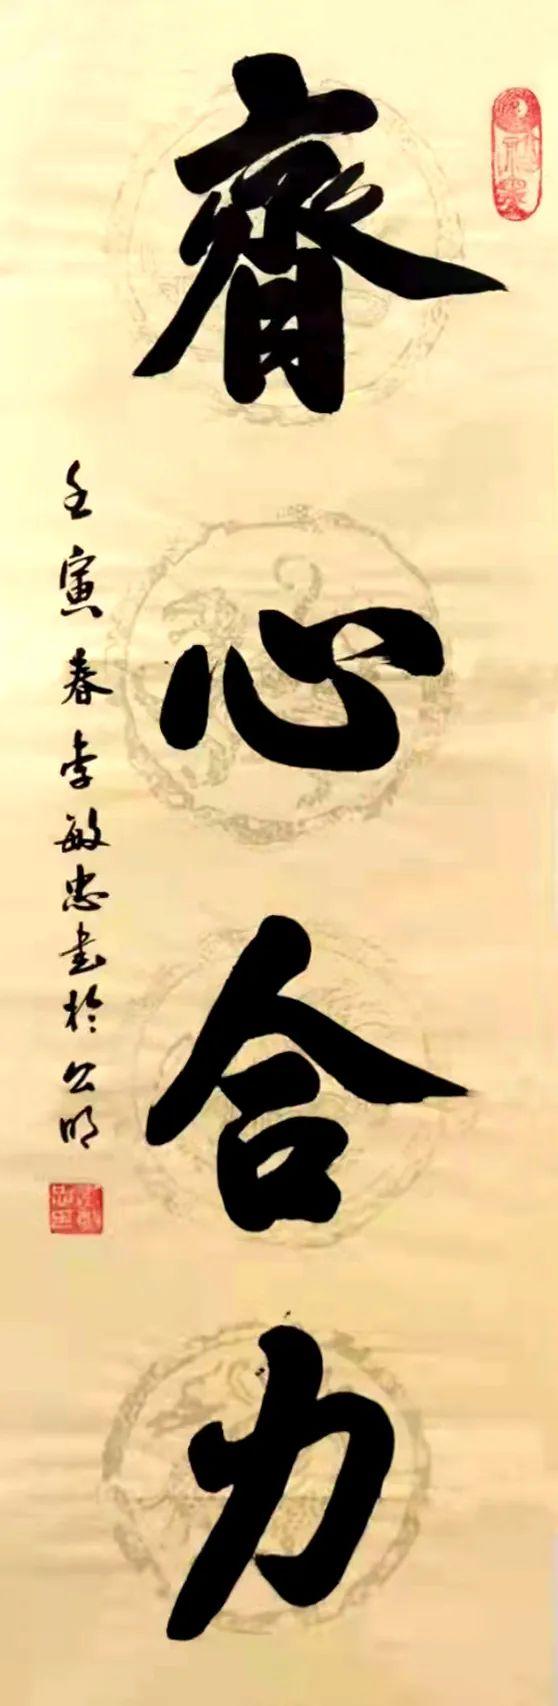 齊心合力
壬寅春李敏忠書於公明